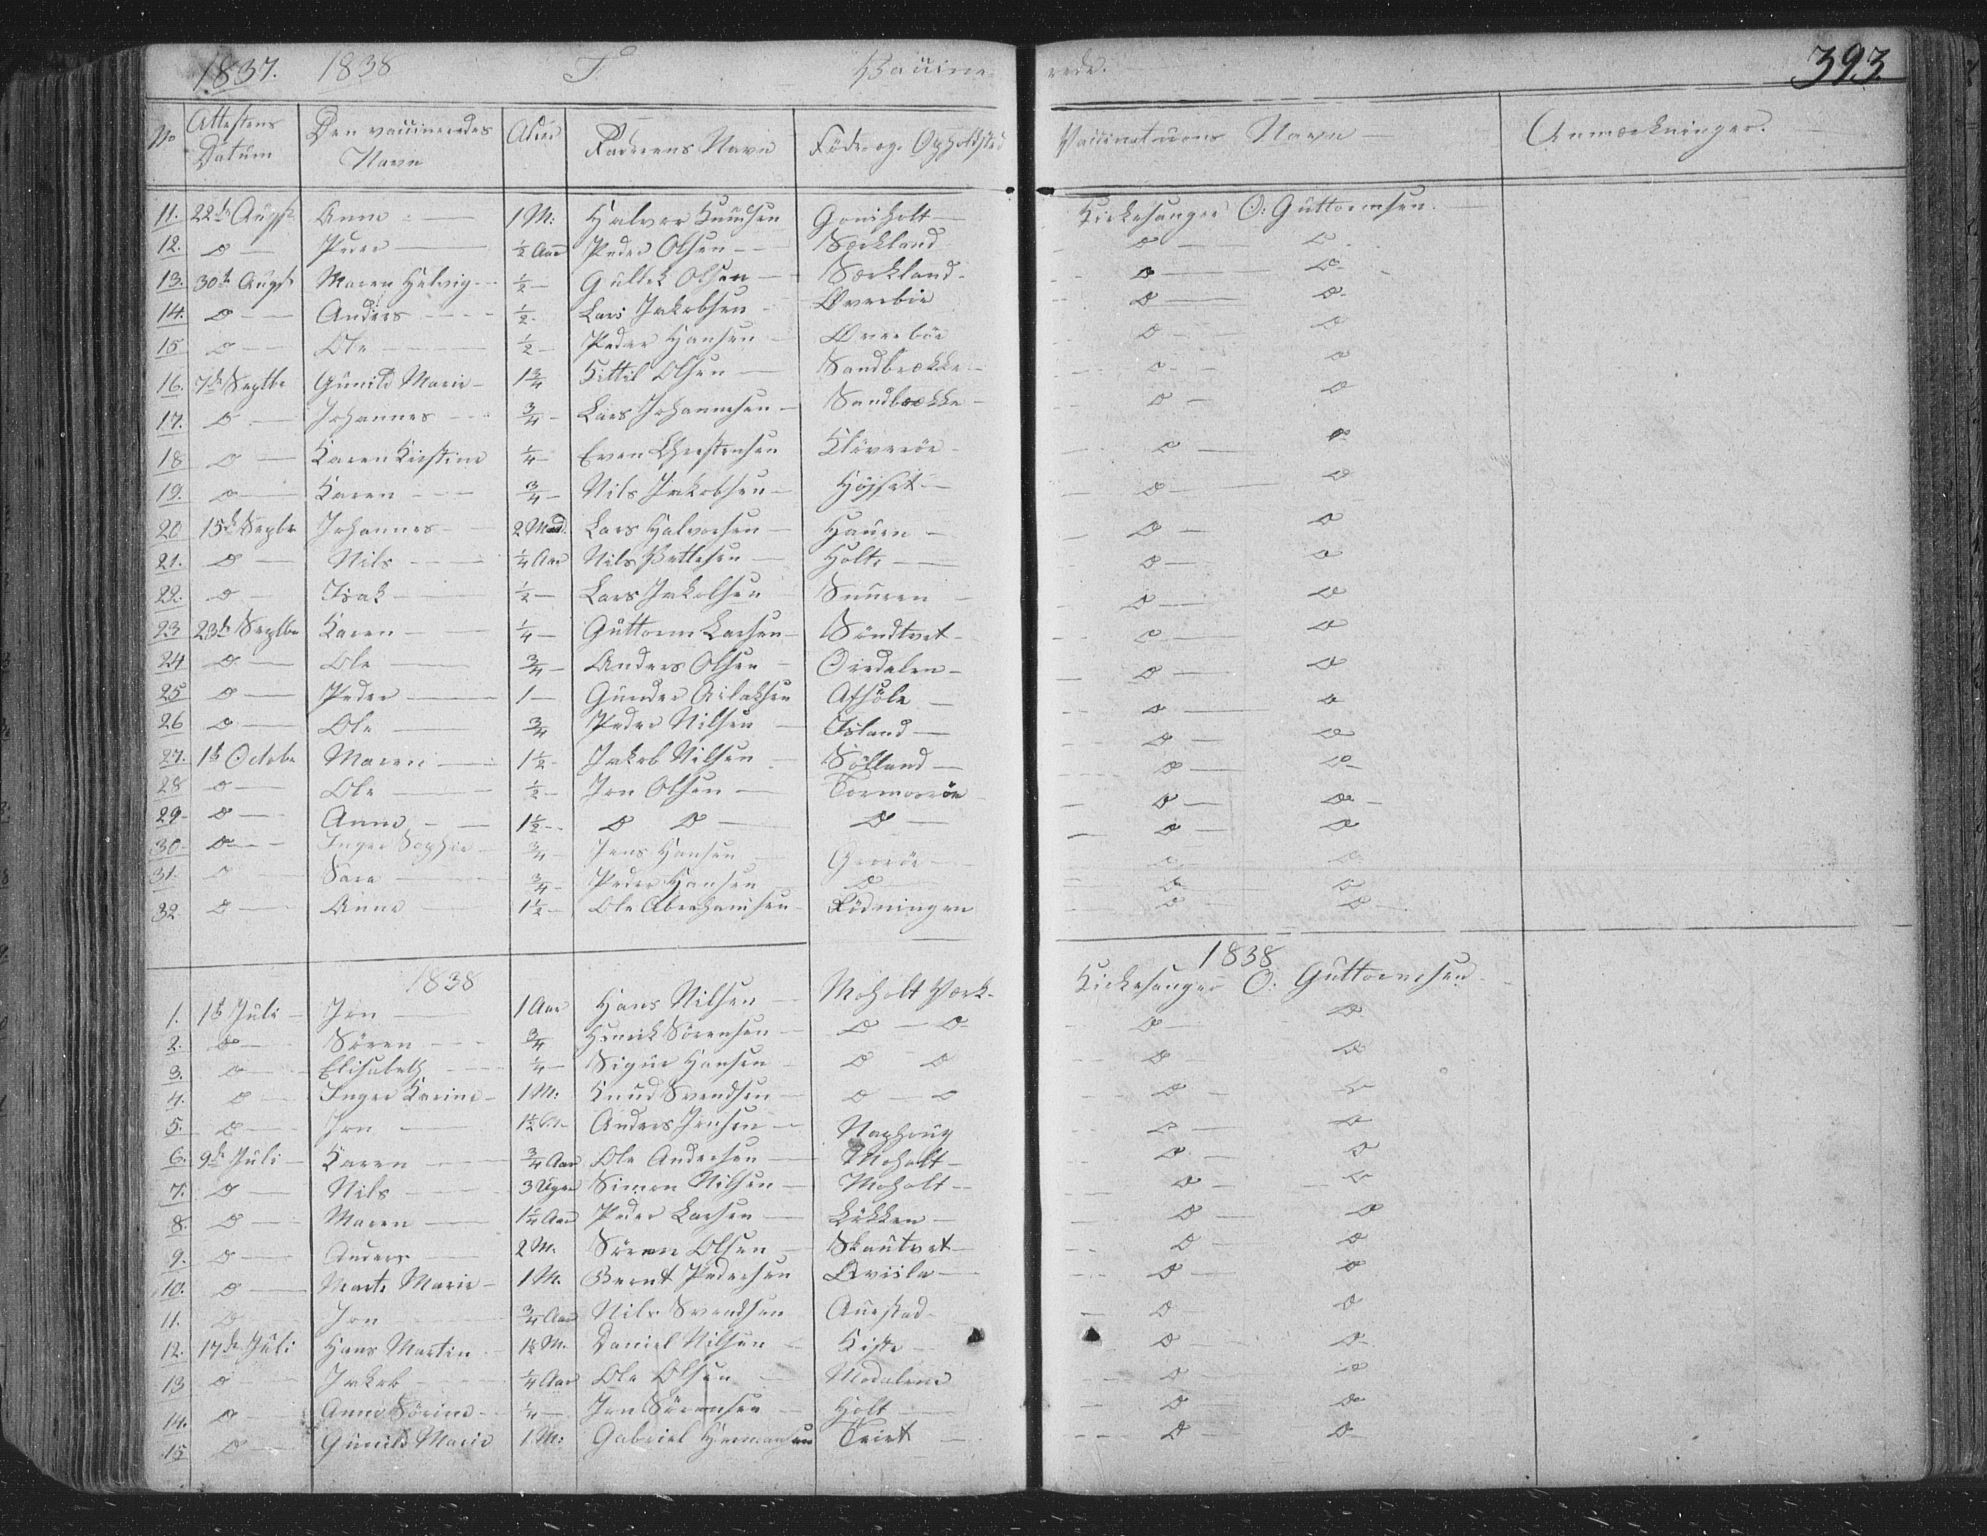 1837. 1838 F. Vaccine- rede. 393.
No Attestens Datum Den vaccineredes Navn Alder Faderens Navn Føde- og Opholdsted Vaccinateurens Navn Anmærkninger.
11. 22de Augst Anne 1 M: Halvor Knudsen Gonsholt Kirkesanger O: Guttormsen.
12. o Peder ½ Aar Peder Olsen Særkland o o
13. 30te Augst Maren Helvig ½ Gullek Olsen Særkland o o
14. o Anders ½ Lars Jakobsen Overbøe o o
15 o Ole ½ Peder Hansen Overbøe o o
16. 7de Septbr Gunild Marie 1¾ Kittil Olsen Sandbrække o o
17. o Johannes ¾ Lars Johannesen Sandbrække o o
18 o Karen Kirstine ¼ Even Christensen Kløverøe o o
19. o Karen ¾ Nils Jakobsen Højset o o
20 15de Septbr Johannes 2 Maad. Lars Halvorsen Hauen o o
21. o Nils ¼ Aar Nils Pettersen Holte o o
22. o Isak ½ Lars Jakobsen Snuren o o
23 23de Septbr Karen ¼ Guttorm Larsen Søndtvet o o
24 o Ole ¾ Anders Olsen Dirdalen o o
25 o Peder 1 Gunder Aslaksen Afsøle o o
26 o Ole ¾ Peder Nilsen Island o o
27. 1te Octobr Maren 1½ Jakob Nilsen Sølland o o
28 o Ole ½ Jon Olsen Tormorøe o o
29 o Anne 1½ o o o o o
30. o Inger Sophie ¾ Jens Hansen Gerøe o o
31. o Sara ¾ Peder Hansen o o o
32. o Anne 1½ Ole Abrahamsen Rødningen o o
1838 1838
1. 1te Juli Jon 1 Aar Hans Nilsen Moholt Værk Kirkesanger O: Guttormsen
2. o Søren ¾ Henrik Sørensen o o o o
3. o Elisabeth ¼ Sigur Hansen o o o o
4. o Inger Karine 1 M: Knud Svendsen o o o o
5. o Jon 1½ M Anders Jensen Naphoug o o
6. 9de Juli Karen ¾ Aar Ole Andersen Moholt o o
7. o Nils 3 Uger Simon Nilsen Moholt o o
8. o Maren 1¼ Aar Peder Larsen Løkken o o
9. o Anders 2 M. Søren Olsen Skautvet o o
10. o Marte Marie 1 M. Bernt Pedersen Qvisla o o
11. o Jon ¾ Aar Nils Svendsen Auestad o o
12. 17de Juli Hans Martin 1½ M. Daniel Nilsen Kiste o o
13 o Jakob ¼ Aar Ole Olsen Modalen o o
14. o Anne Sørine ¼ Jon Sørensen Holt o o
15 o Gunild Marie 1 M: Gabriel Hermansen Tvint o o